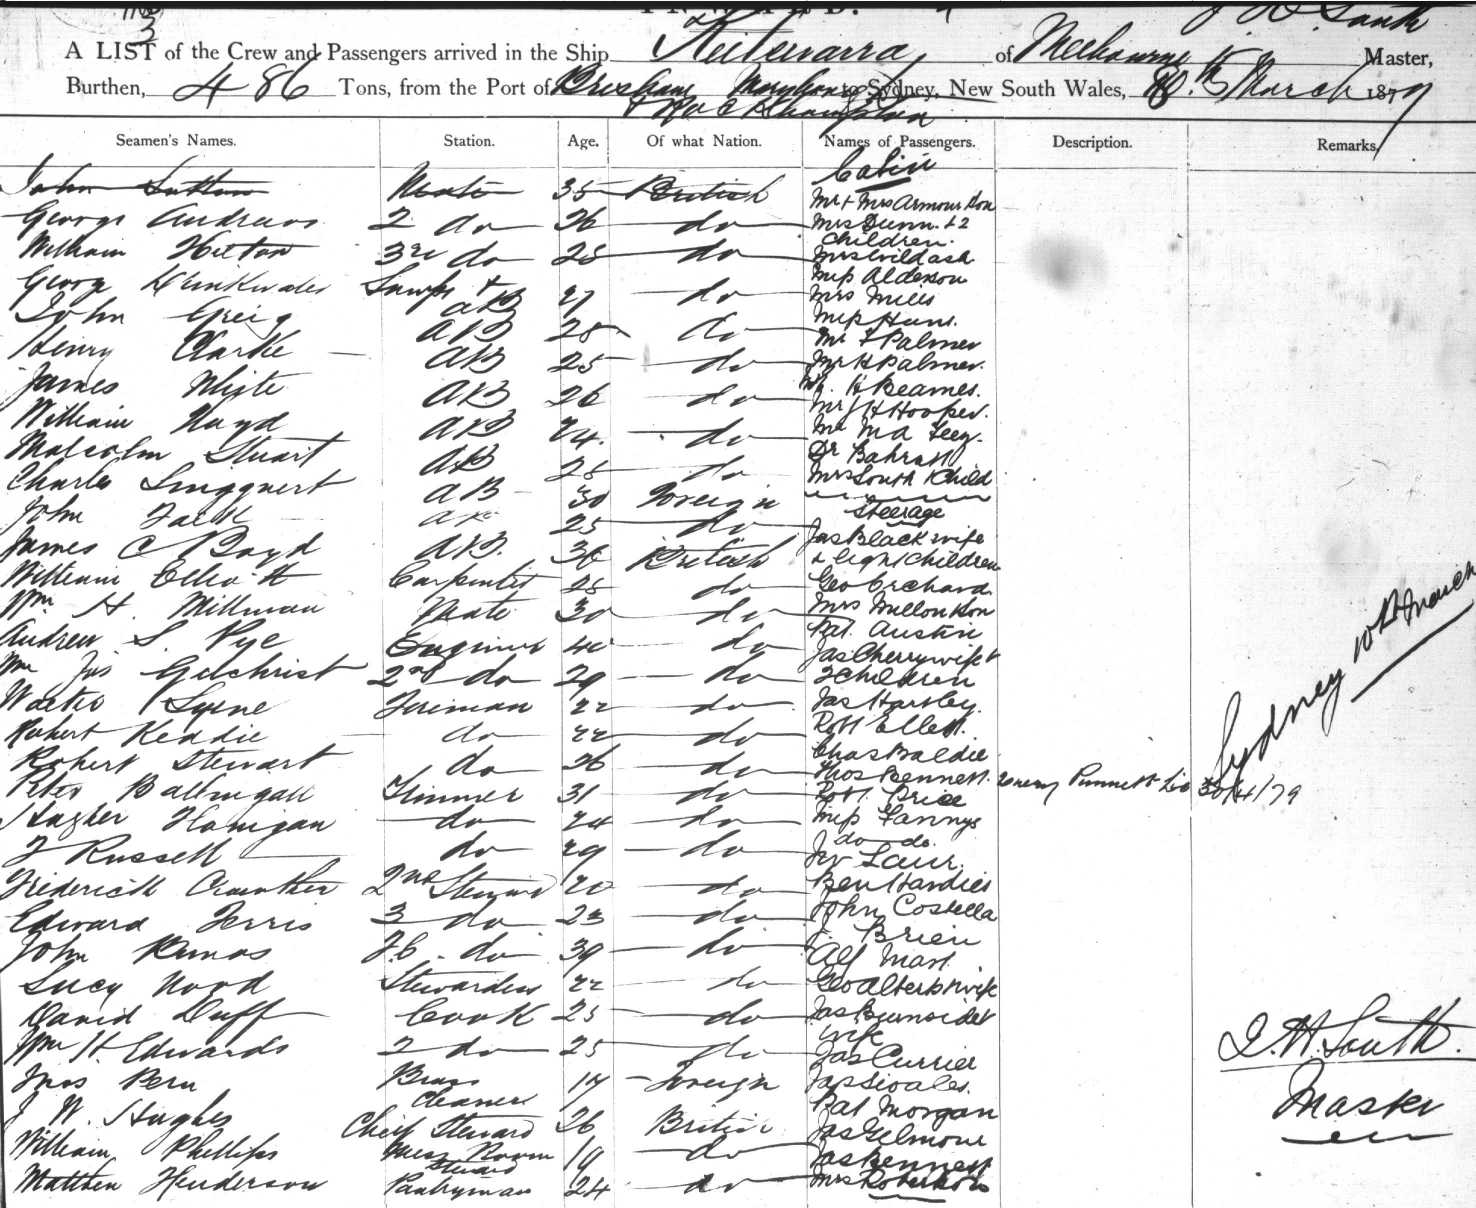 J. W. South
A LIST of the Crew and Passengers arrived in the Ship Keilawarra of Melbourne Master,
Burthen, 486 Tons, from the Port of Brisbane Maryboro to Sydney, New South Wales, 10th March 1879
& Rockhampton
Seamen's Names. Station. Age. Of what Nation. Names of Passengers. Description. Remarks.
Cabin
John Mate 35 British Mr & Mrs Armour Son
George Andrews 2 do 26 do Mrs Dunn & 2
children.
William Hilton 3rd do 25 do Mrs Wildash
Miss Alderson
George Lamps & AB 27 do Mrs Mills
Miss Hunt.
John Greig AB 25 do Mr F Palmer
Henry Clarke AB 25 do Mr H Palmer.
James White AB 26 do H Beames.
Mr J H Hooper.
William AB 24. do Mr M A
Dr
Malcolm Stuart AB 25 do Mrs South & Child
Charles AB 30 Foreign
Steerage
John Jack AB 25 do Jas Black wife
James C Boyd AB. 36 British & eight children
William Elliott Carpenter 25 do Geo Orchard
Wm H. Millman Mate 30 do Mrs Mellon Son
Pat. Austin
Andrew S. Pye Engineer 40 do Jas Cherry wife &
Wm Jas Gilchrist 2nd do 29 do children
Walter Syne Fireman 22 do Jas Hartley.
Robert Keddie do 22 do Robt Ellett.
Robert Stewart do 26 do Chas Baldie
Thos Bennett.
Peter Balbirgall Trimmer 31 do Robt Price
Hugher Hanigan do 24 do Miss Fannys
do do.
J Russell do 29 do Laur.
Frederick Crowther 2nd Steward 20 do Ben Hardies
Edward Ferris 3 do 23 do John Costella
J. Brien
John F.C. do 39 do Alf
Lucy Wood Stewardess 22 do Geo Alberts & wife
David Duff Cook 25 do Jas Burnside &
wife
Wm H. Edwards 2 do 25 do Jas Currier
Brass Cleaner 17 Foreign
Pat Morgan
J W. Hughes Chief Steward 26 British Jas Gilmour
William Phillips Mess Room Steward 19 do Jas Bennett
Matthew Henderson Pantryman 24 do Mrs Robertson
Sydney 10th March
30/4/79
J. W. South.
Master